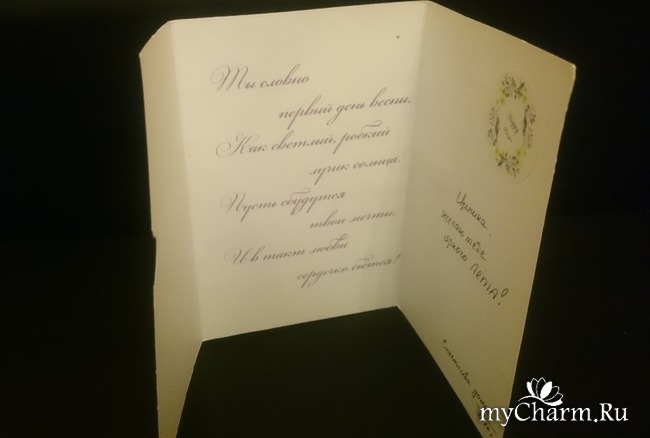 Ты словно
первый день весны,
Как светлый, робкий
лучик солнца.
Пусть сбудутся
твои мечты,
И в такт любви
сердечко бьётся!
Happy
Иришка,
желаю тебе
яркого ЛЕТА!
myCharm.Ru